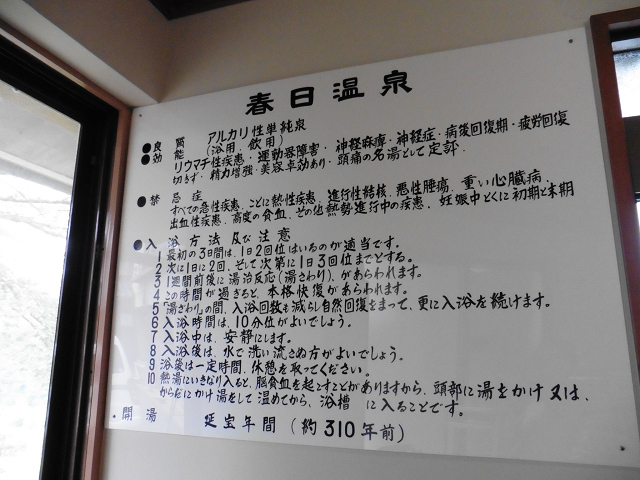 春日温泉
●良質 アルカリ性単純泉
●効能 (浴用.飲用)
リウマチ性疾患.運動器障害.神経麻痺.神経症.病後回復期.疲労回復
切きず.精力増強.美容卓効あり.頭痛の名湯として定評.
●禁忌症
すべての急性疾患.ことに熱性疾患.進行性結核.悪性腫瘍.重い心臓病.
出血性疾患.高度の貧血.その他熱勢進行中の疾患.妊娠中とくに初期と末期
●入浴方法及び注意
1 最初の3日間は、1日2回位はいるのが適当です。
2 次に1日に2回、そして次第に1日3回位までとする。
3 1週間前後に湯治反応(湯さわり)、があらわれます。
4 この時期が過ぎると、本格快復があらわれます。
5 「湯さわり」の間、入浴回数も減らし自然回復をまって、更に入浴を続けます。
6 入浴時間は、10分位がよいでしょう。
7 入浴中は、安静にします。
8 入浴後は、水で洗い流さぬ方がよいでしょう。
9 浴後は一定時間、休憩を取ってください。
10 熱湯にいきなり入ると、脳貧血を起こすことがありますから、頭部に湯をかけ又は、
からだにかけ湯をして温めてから、浴槽 に入ることです。
開湯 延宝年間 (約310年前)